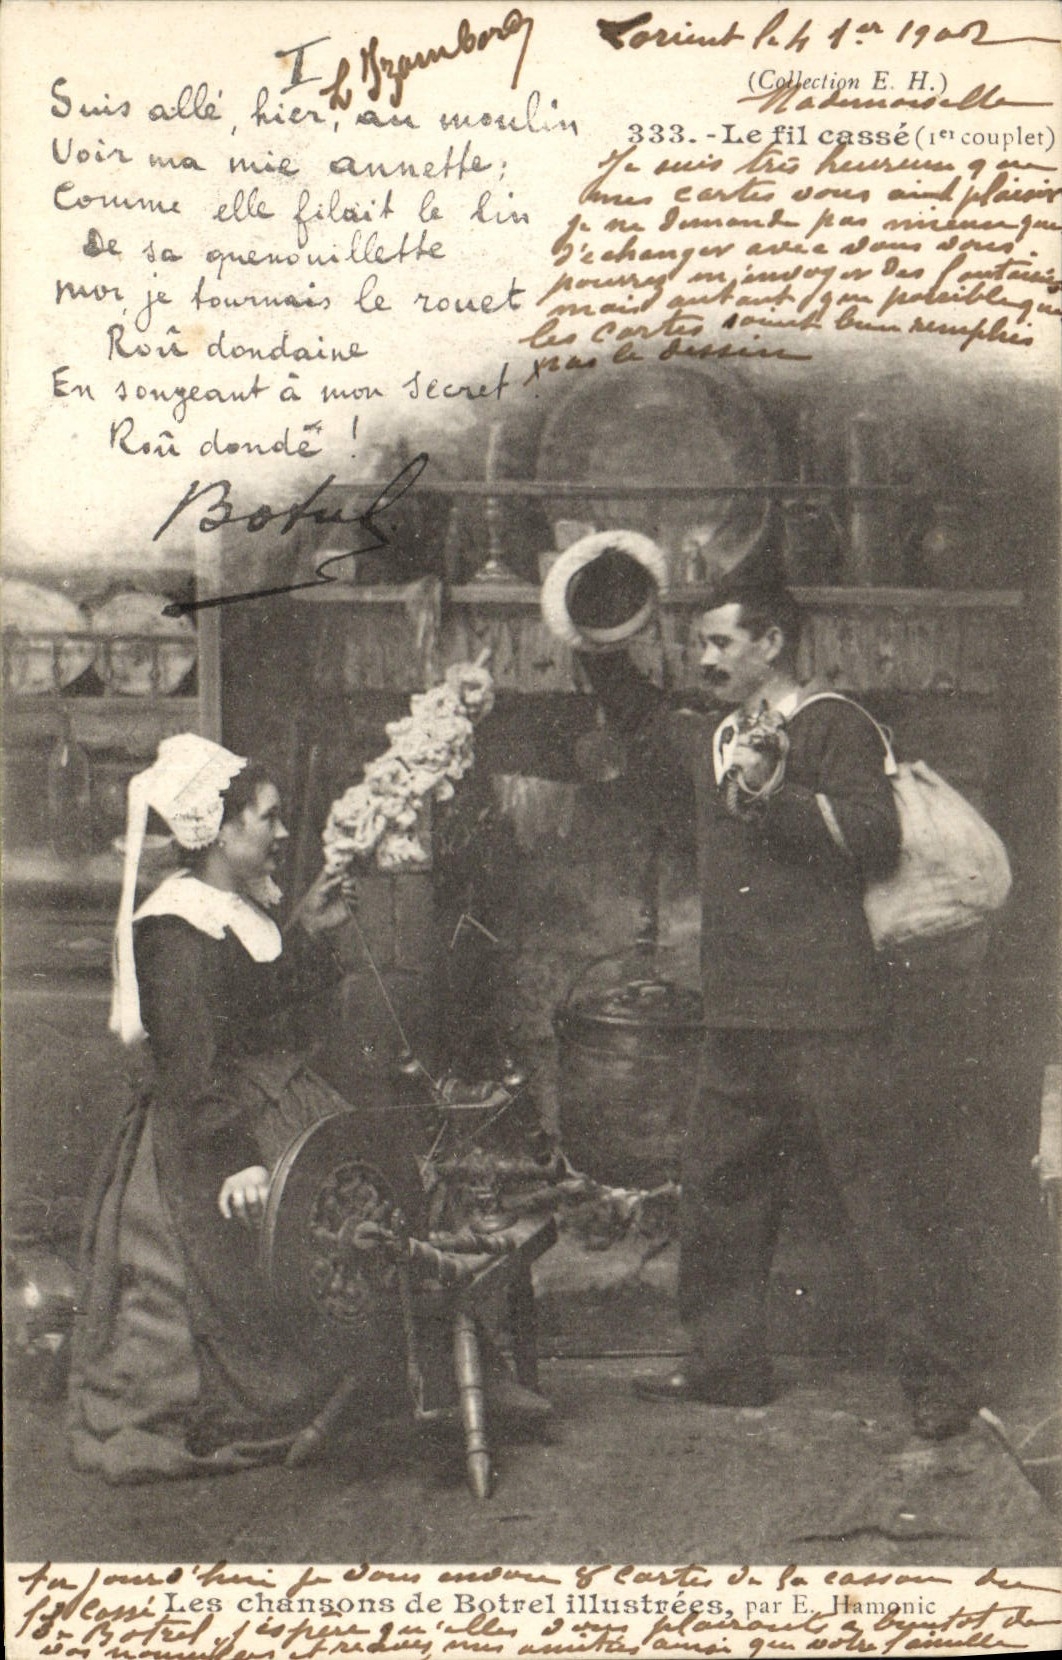 I
Lorient le 4 1er 1902
(Collection E. H.)
Mademoiselle
333. - Le fil cassé (1er couplet)
Suis allé, hier, au moulin
Voir ma mie annette;
Comme elle filait le lin
De sa quenouillette
Moi, je tournais le rouet
Roû dondaine
En songeant à mon secret
Roû dondé !
Botrel
Je suis très heureux que
mes cartes vous aient plaisir
je ne demande pas mieux que
d'échanger avec vous vous
pourrez m'envoyer des fantaisies
mais autant que possible que
les cartes soient bien remplies
par le dessin
aujourd'hui je vous envoie 8 cartes de la
fil Cassé
Les chansons de Botrel illustrées, par E. Hamonic
de Botrel, j'espère qu'elles vous plairont a bientot de
vos nouvelles et recevez, mes amitiés ainsi que votre famille